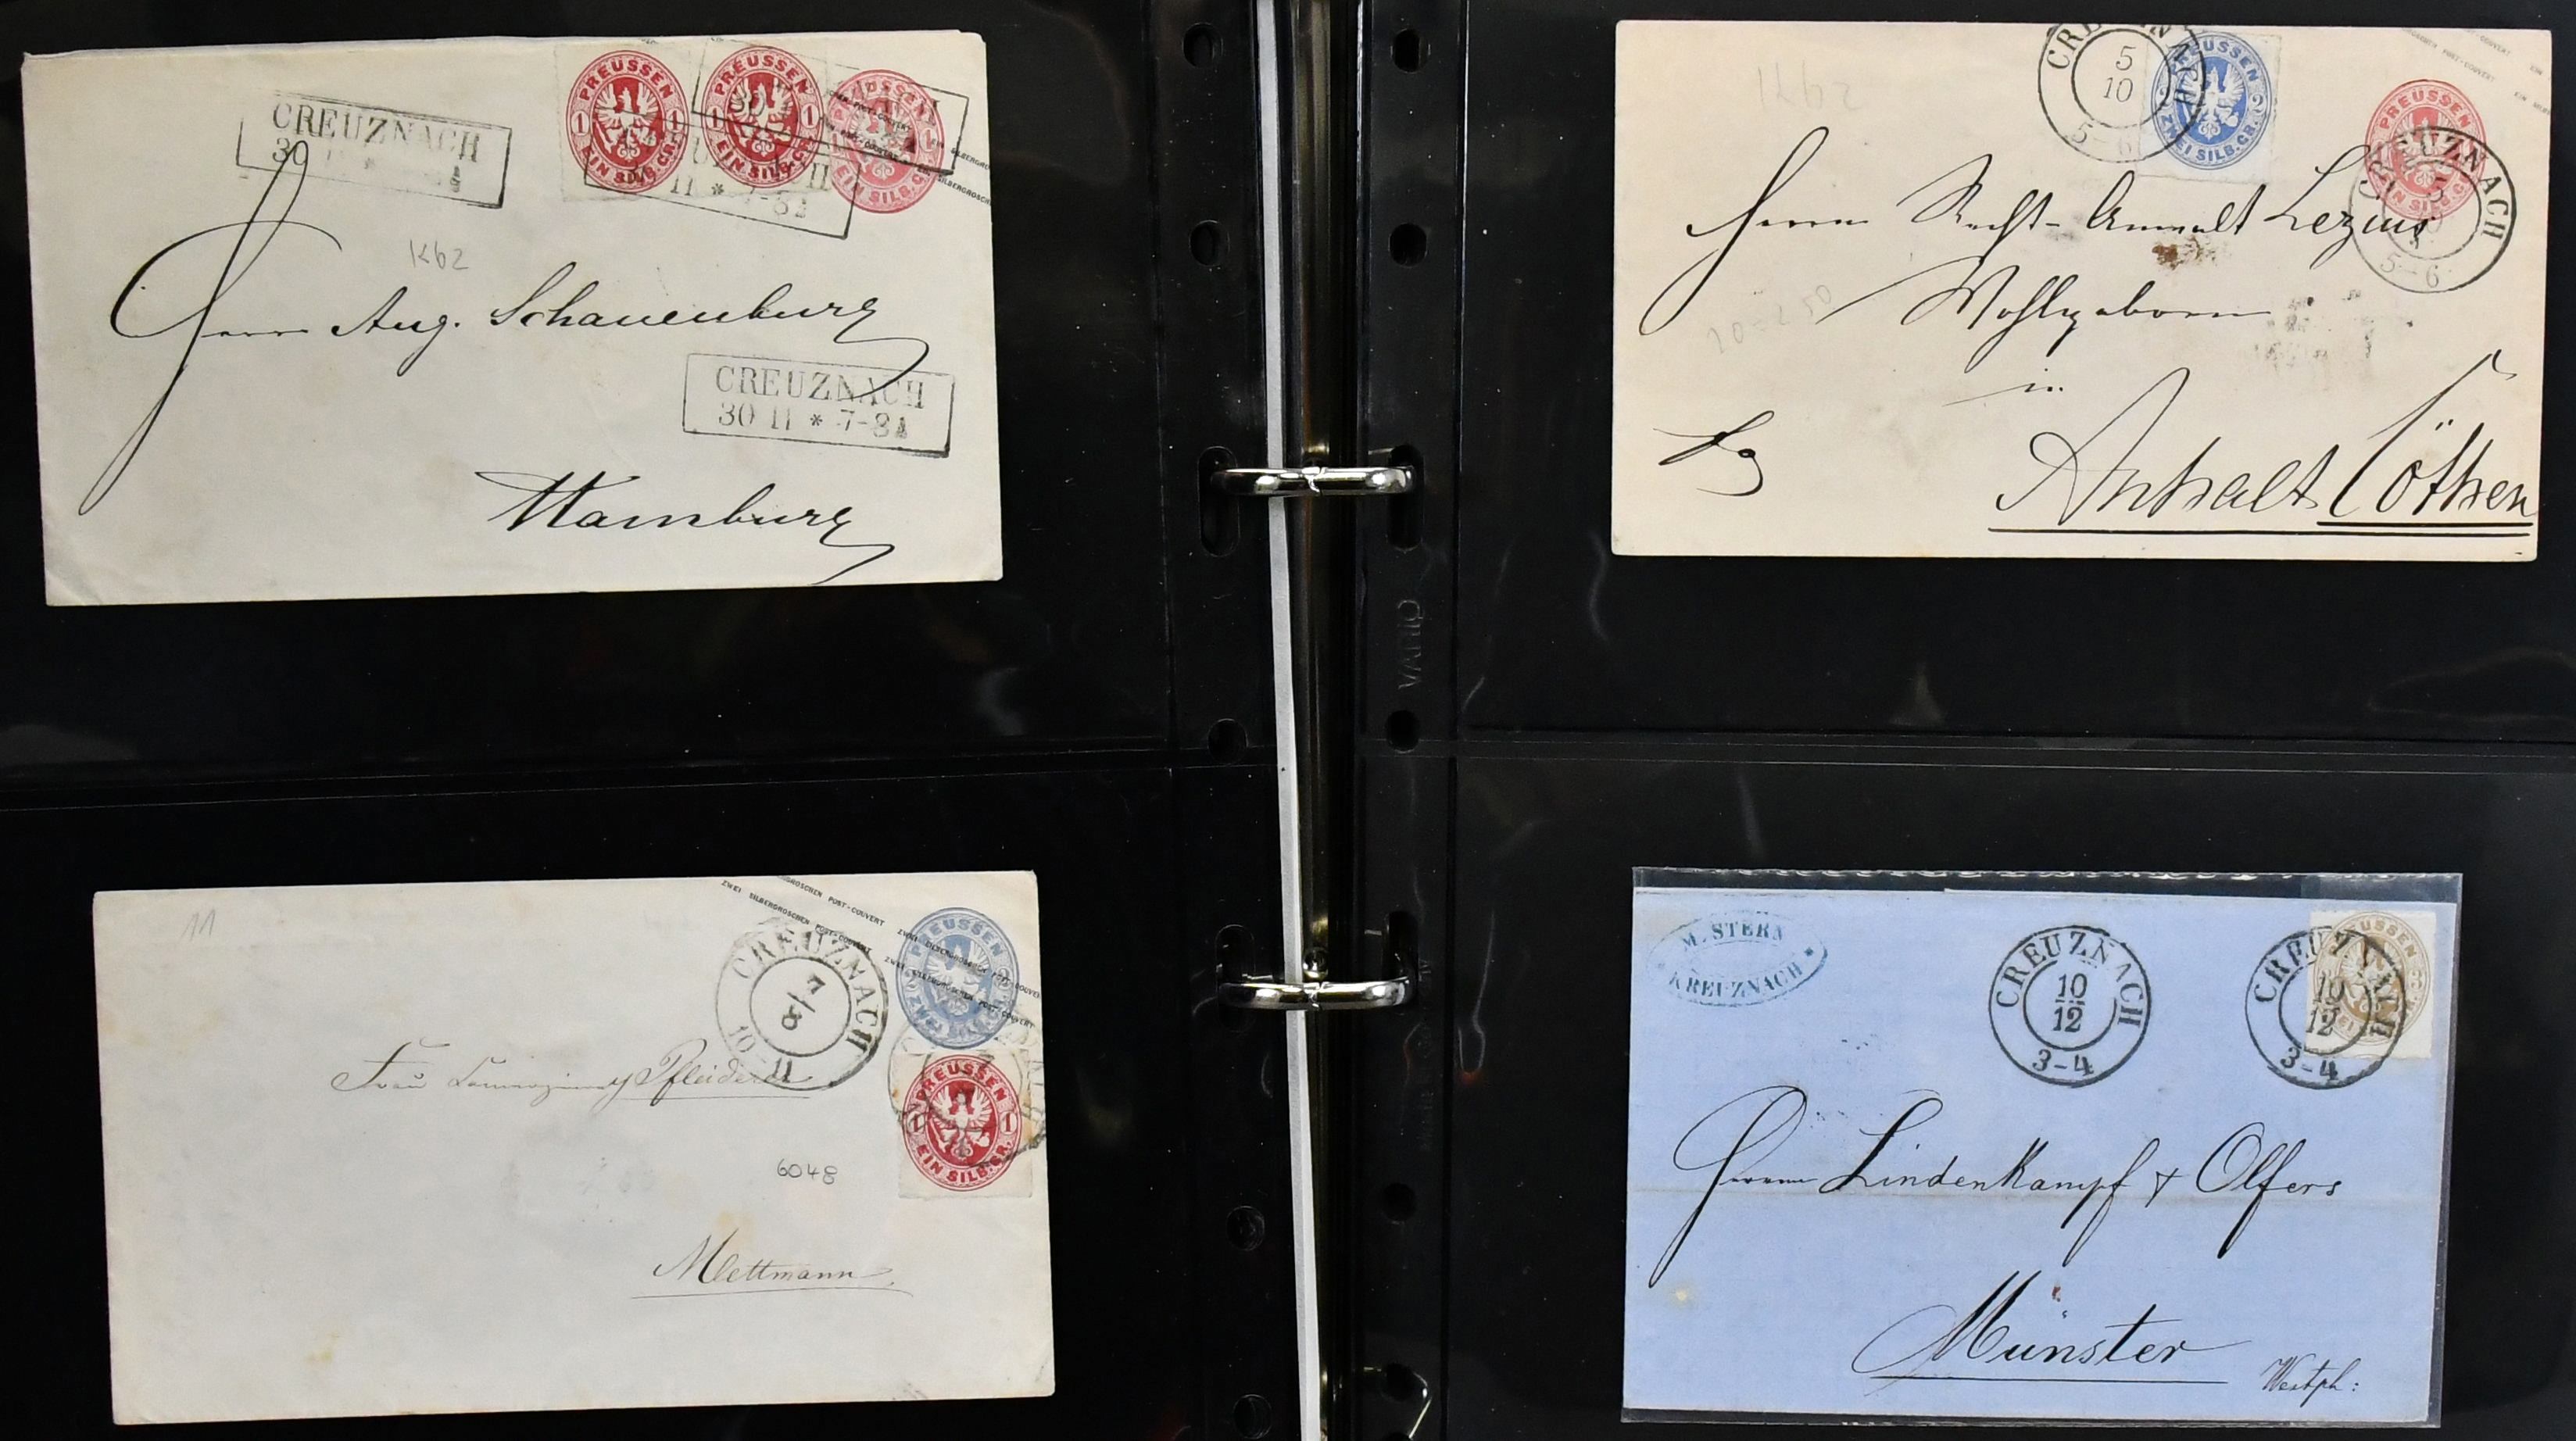 CREUZNACH
30
PREUSSEN
1 1
EIN SILB.GR.
PREUSSEN
1 1
EIN SILB.GR.
11 * 7-8
K62
Herrn Aug. Schauenburg
CREUZNACH
30 11 * 7-8 A
Hamburg
CREUZNACH
5
10
5-6
PREUSSEN
2 2
ZWEI SILB.GR.
PREUSSEN
EIN SILB.GR.
CREUZNACH
5-6
K62
Herrn Recht-Anwalt Lezius
Wohlgeboren
in
Anhalt Cöthen
11
ZWEI SILBERGROSCHEN POST-COUVERT
CREUZNACH
7/8
10-11
PREUSSEN
PREUSSEN
1 1
EIN SILB.GR.
Frau Pfleiderer
6048
Mettmann
M. STERN
KREUZNACH
CREUZNACH
10
12
3-4
CREUZNACH
10
12
3-4
Herrn Lindenkampf & Olfers
Münster
Westph: